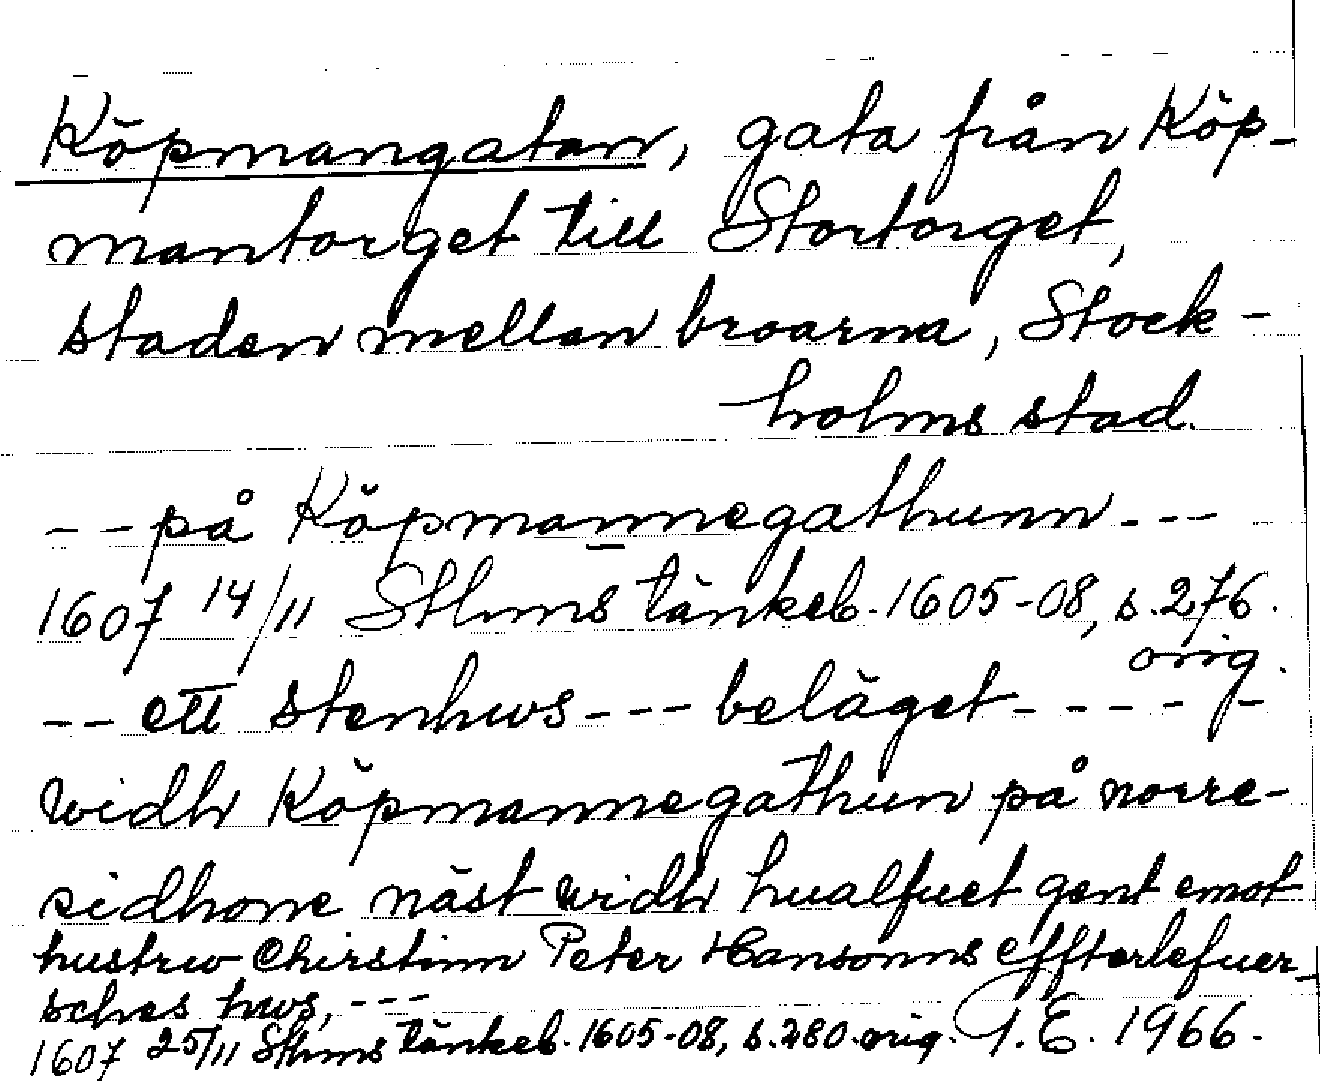 Köpmangatan, gata från Köp-
mantorget till Stortorget,
staden mellan broarna, Stock-
holms stad.
-- på Köpmannegathunn ---
1607 14/11 Sthms tänkeb. 1605-08, s. 276
orig.
-- ett stenhws --- beläget -----
widh Köpmannegathun på norre-
sidhone näst widh hualfuet gent emot
hustrw Chirstinn Peter Hansonns effterlefuer-
sches hws, ---
1607 25/11 Sthms tänkeb. 1605-08, s. 280 orig. I. E. 1966.